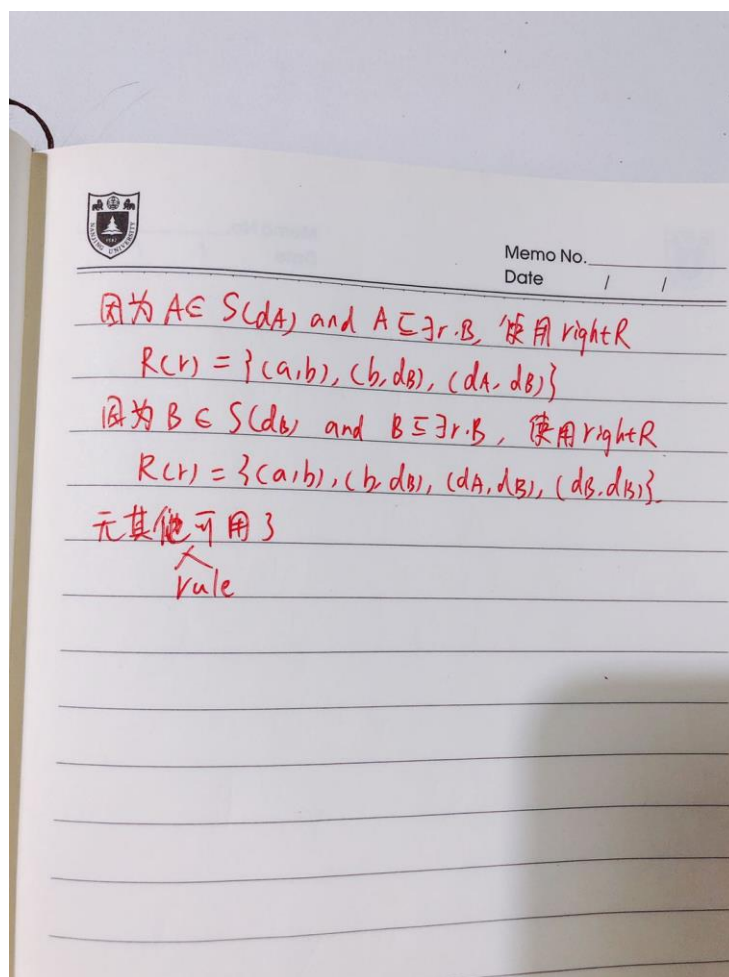 NANJING UNIVERSITY
1902
Memo No.
Date / /
因为 A∈ S(dA) and A⊑∃r.B, 使用 rightR
R(r) = {(a,b), (b,dB), (dA,dB)}
因为 B∈ S(dB) and B⊑∃r.B, 使用 rightR
R(r) = {(a,b), (b,dB), (dA,dB), (dB,dB)}.
无其他可用了
rule